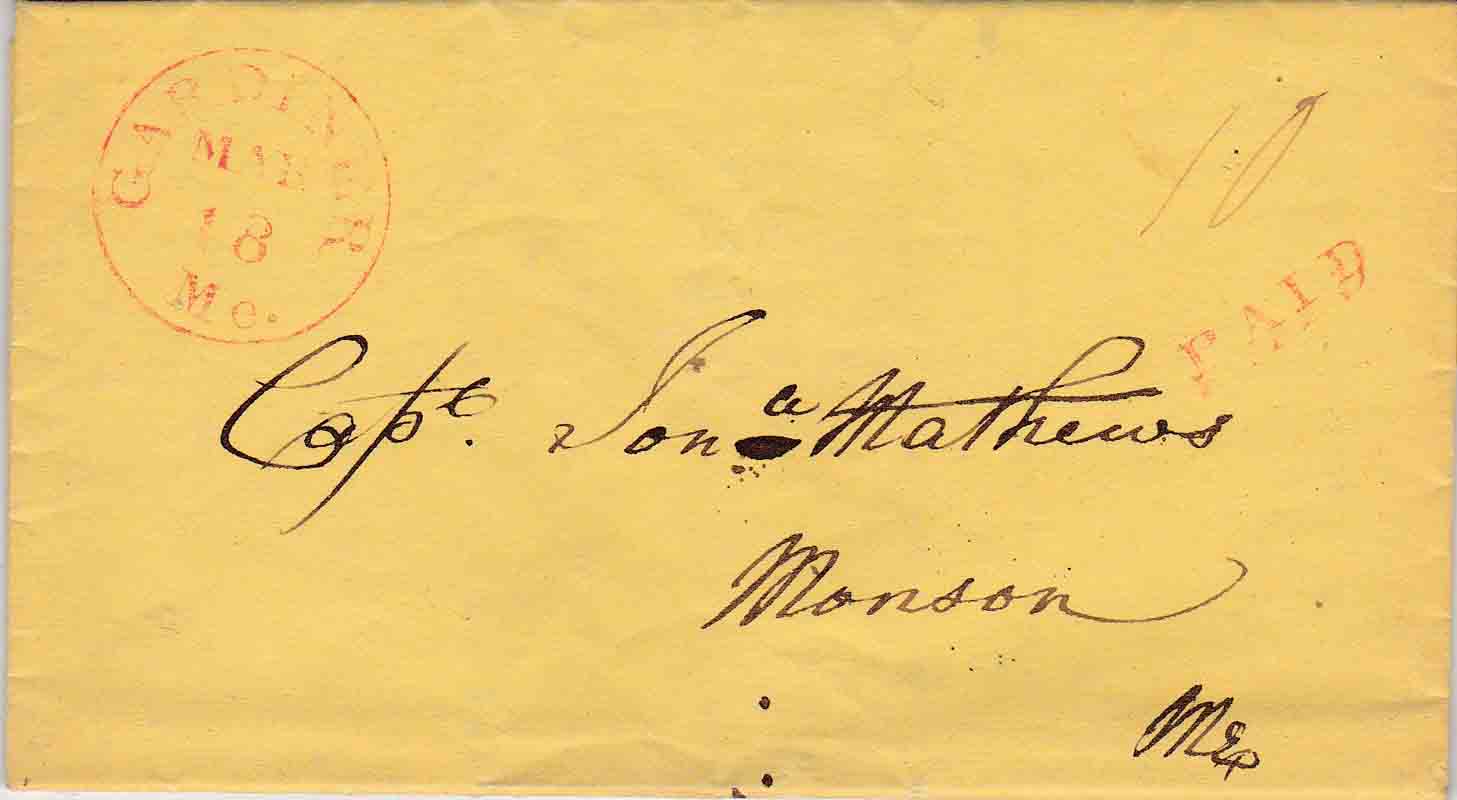 GARDINER
MAR
18
Me.
10
PAID
Capt. Jona Mathews
Monson
Me